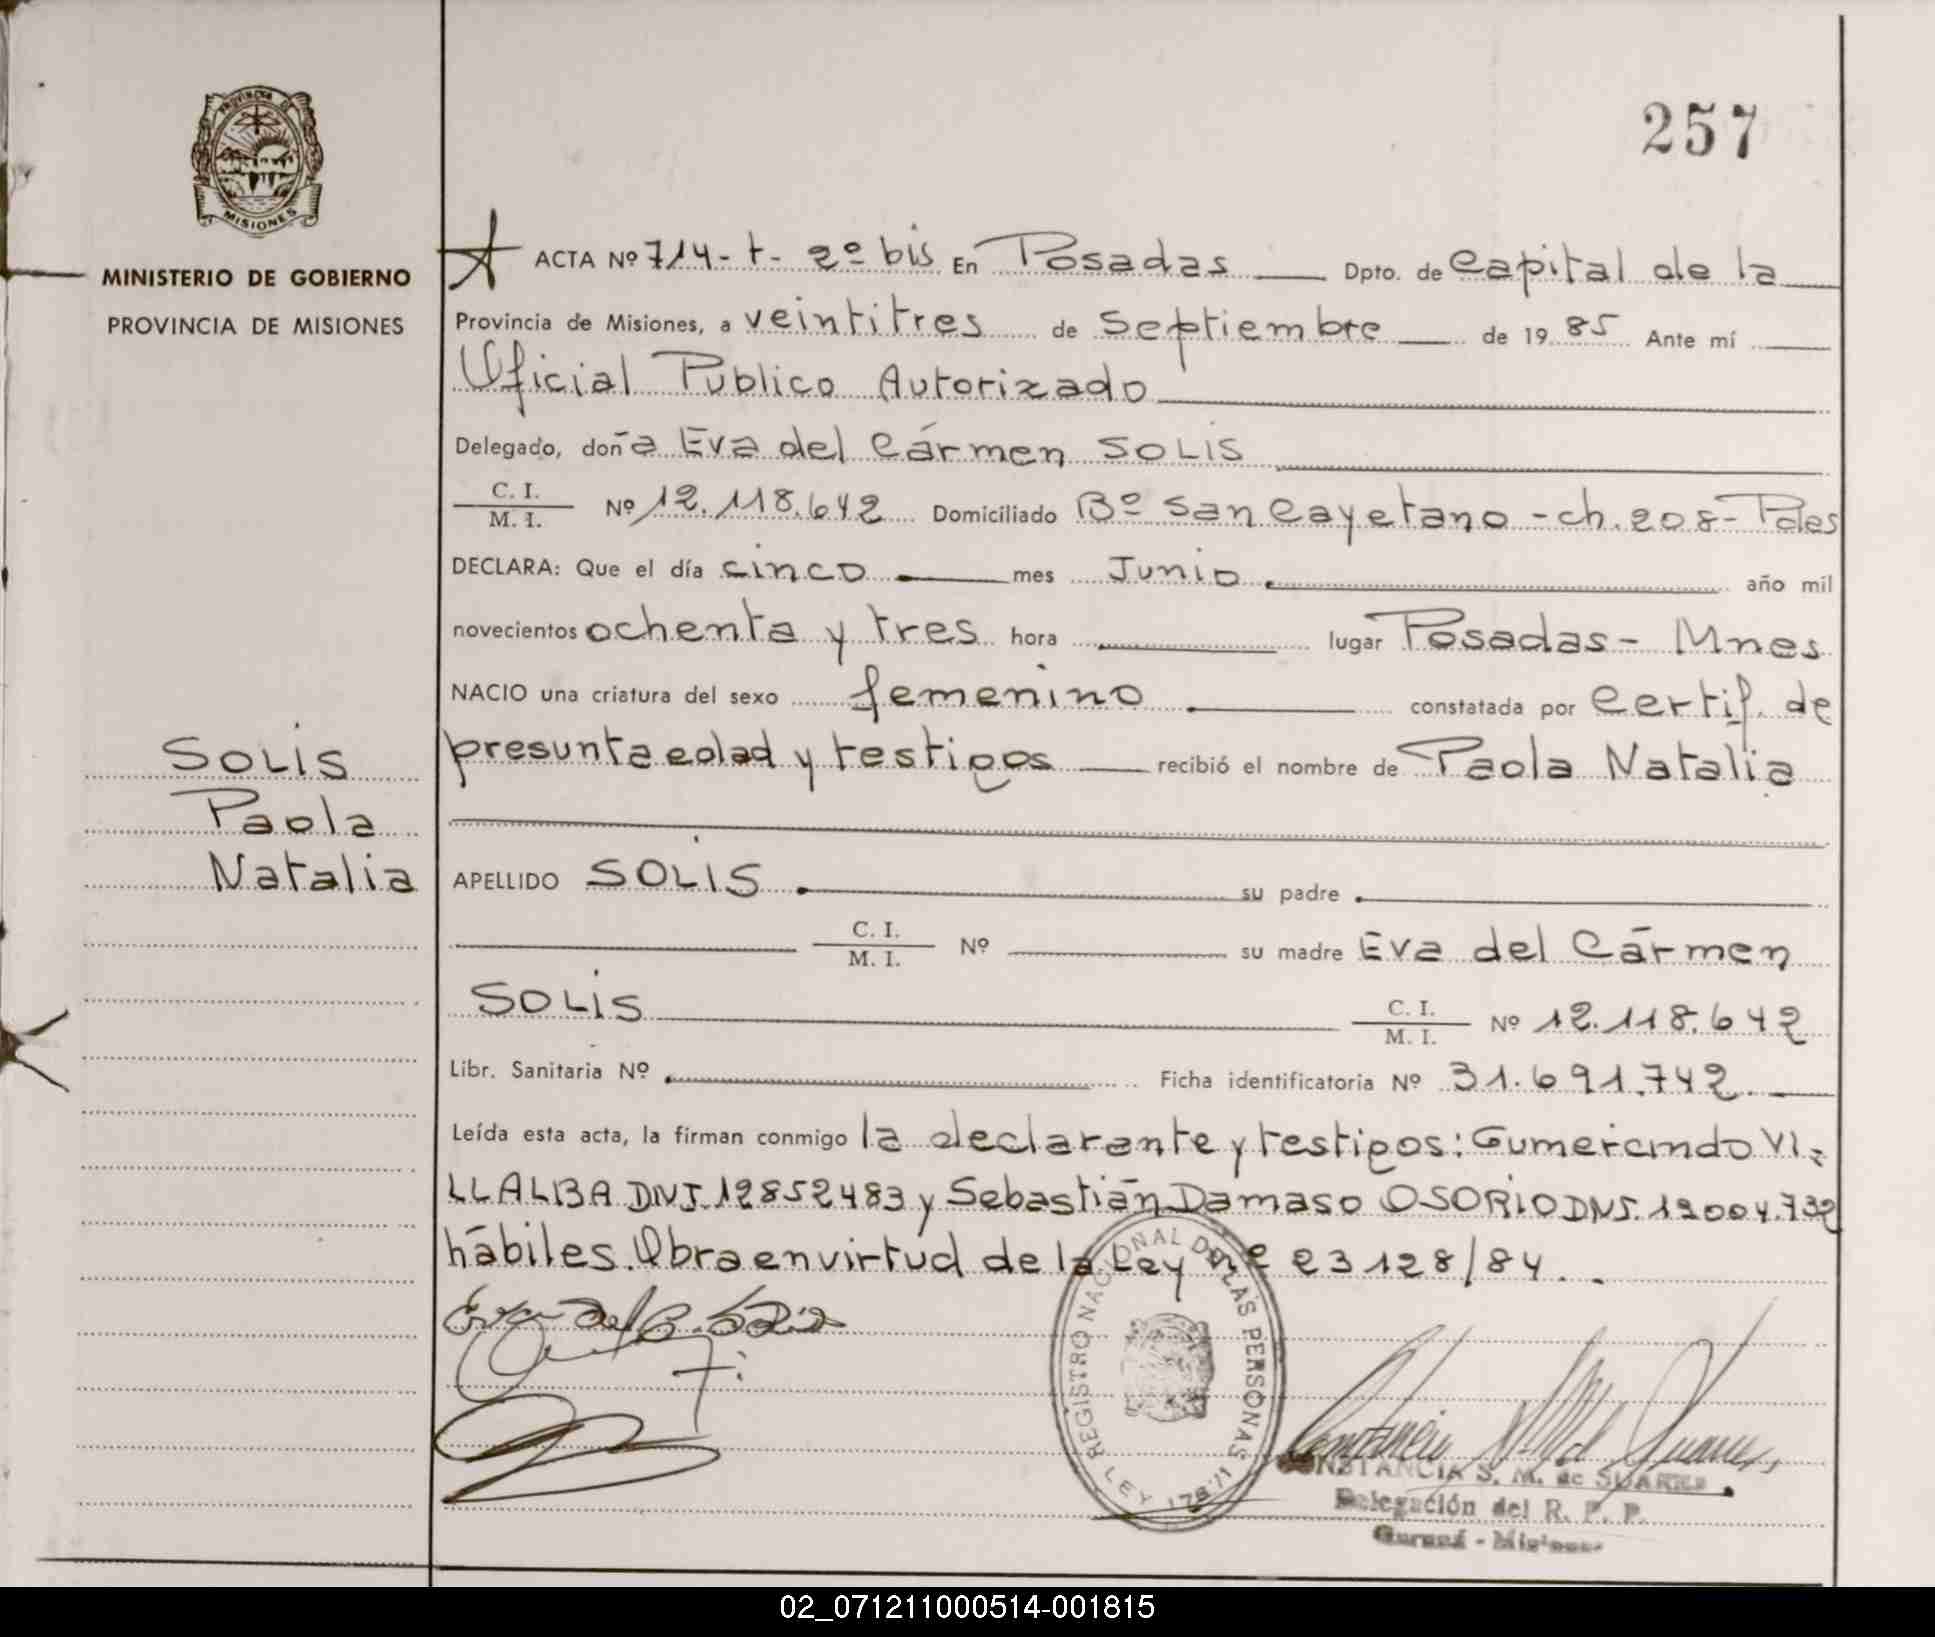 257
PROVINCIA DE
MISIONES
MINISTERIO DE GOBIERNO
PROVINCIA DE MISIONES
ACTA Nº 714 - t - 2º bis En Posadas Dpto. de Capital de la
Provincia de Misiones, a veintitres de Septiembre de 1985 Ante mí
Oficial Publico Autorizado
Delegado, doña Eva del Cármen SOLIS
C. I.
M. I. Nº 12.118.642 Domiciliado Bº San Cayetano - ch. 208 - Pdas
DECLARA: Que el día cinco mes Junio año mil
novecientos ochenta y tres hora lugar Posadas - Mnes
NACIO una criatura del sexo femenino constatada por Certif. de
presunta edad y testigos recibió el nombre de Paola Natalia
SOLIS
Paola
Natalia
APELLIDO SOLIS su padre
C. I.
M. I. Nº su madre Eva del Cármen
SOLIS C. I.
M. I. Nº 12.118.642
Libr. Sanitaria Nº Ficha identificatoria Nº 31.691.742
Leída esta acta, la firman conmigo la declarante y testigos: Gumercindo VI=
LLALBA DNI. 12852483 y Sebastián Damaso OSORIO DNI. 12004.732
hábiles. Obra en virtud de la Ley nº 23128/84.
Eva del C. Solis
REGISTRO NACIONAL DE LAS PERSONAS
LEY 17671
CONSTANCIA S. M. de SUAREZ
Delegación del R. P. P.
02_071211000514-001815